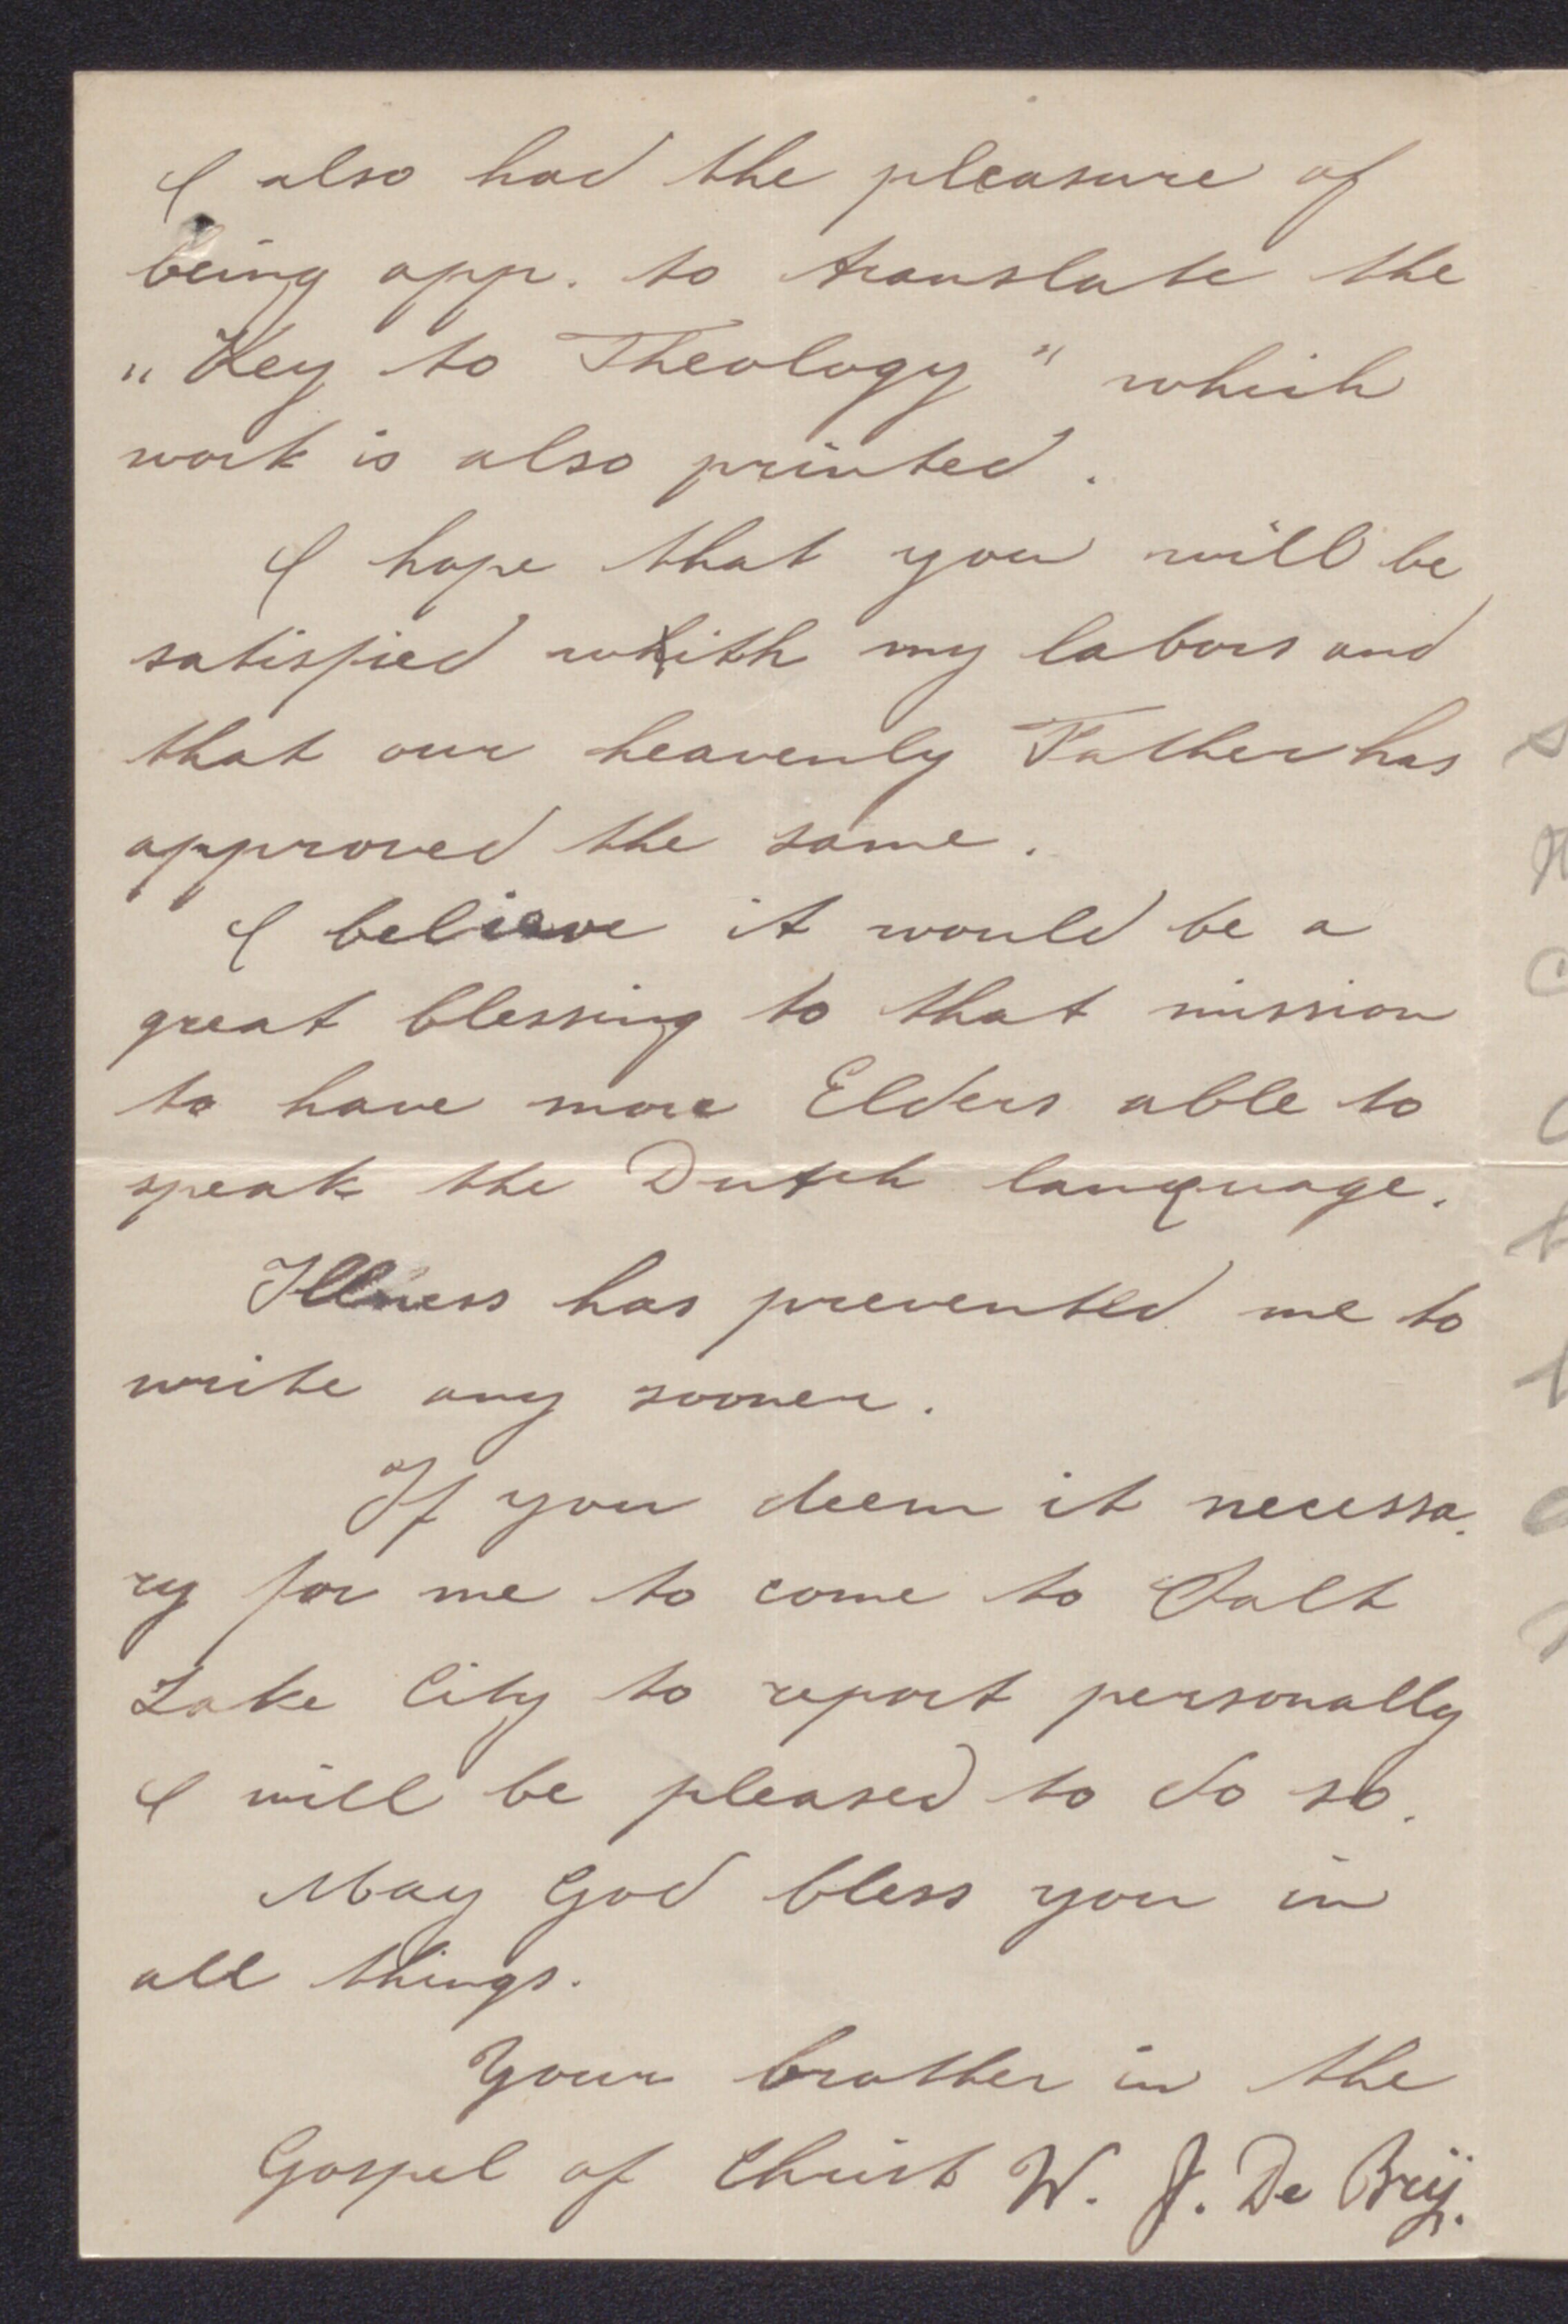 I also had the pleasure of
being app. to translate the
„Key to Theology" which
work is also printed.
I hope that you will be
satisfied with my labors and
that our heavenly Father has
approved the same.
I believe it would be a
great blessing to that mission
to have more Elders able to
speak the Dutch language.
Illness has prevented me to
write any sooner.
If you deem it necessa-
ry for me to come to Salt
Lake City to report personally
I will be pleased to do so.
May God bless you in
all things.
Your brother in the
Gospel of Christ W. J. De Brij.